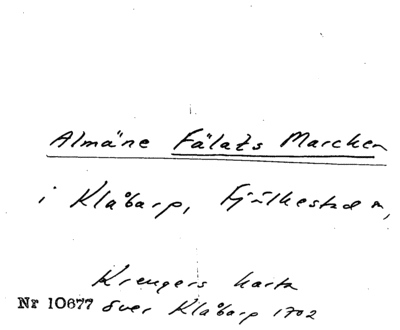 Almäne Fälats Marcken
i Klåbarp, Fjälkestad s,
Krengers karta
Nr 10677 över Klåbarp 1702